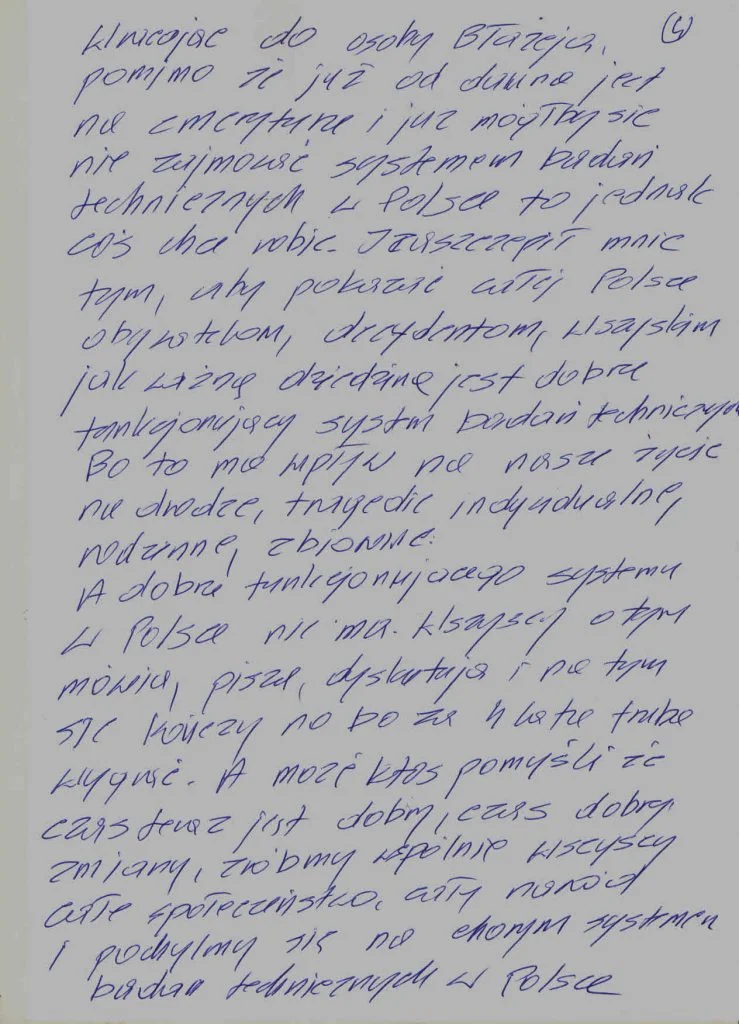 Wracając do osoby Błażeja, (4)
pomimo że już od dawna jest
na emeryturze i już mógłby się
nie zajmować systemem badań
technicznych w Polsce to jednak
coś chce robić. I zaszczepił mnie
tym, aby pokazać całej Polsce
obywatelom, decydentom, wszystkim
jak ważną dziedziną jest dobrze
funkcjonujący system badań technicznych
Bo to ma wpływ na nasze życie
na drodze, tragedie indywidualne,
rodzinne, zbiorowe.
A dobrze funkcjonującego systemu
w Polsce nie ma. Wszyscy o tym
mówią, piszą, dyskutują i na tym
się kończy no bo za 4 lata trzeba
wygrać. A może ktoś pomyśli że
czas teraz jest dobry, czas dobrej
zmiany, zróbmy wspólnie wszyscy
całe społeczeństwo, cały naród
i pochylmy się na chorym systemem
badań technicznych w Polsce